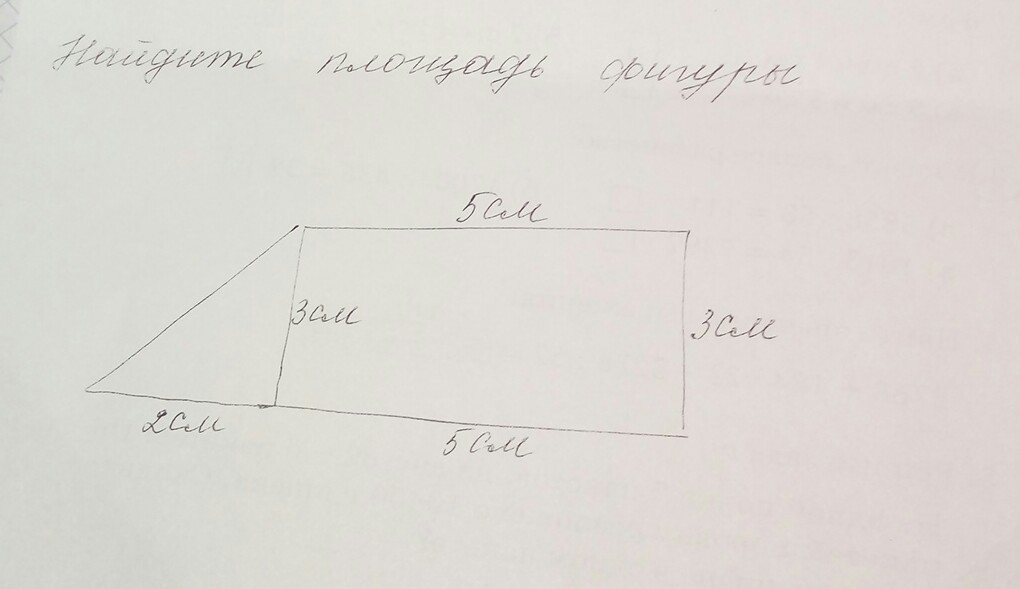 Найдите площадь фигуры
5см
3см
3см
2см
5см